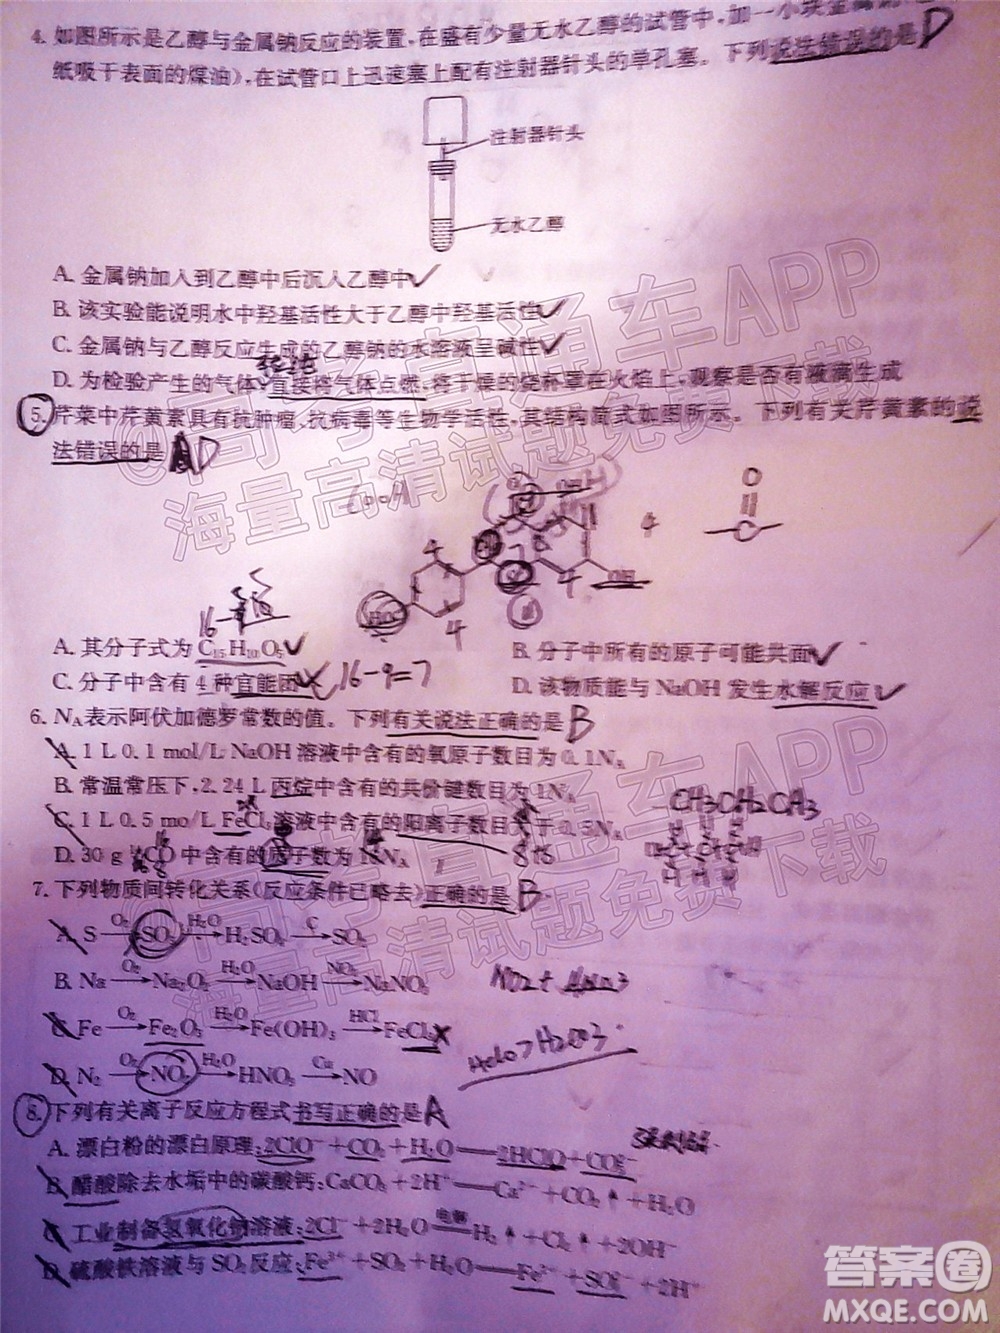 4. 如图所示是乙醇与金属钠反应的装置,在盛有少量无水乙醇的试管中,加一小块金属钠
纸吸干表面的煤油),在试管口上迅速塞上配有注射器针头的单孔塞。下列说法错误的是 D
注射器针头
无水乙醇
A. 金属钠加入到乙醇中后沉入乙醇中 ✓
B. 该实验能说明水中羟基活性大于乙醇中羟基活性 ✓
C. 金属钠与乙醇反应生成的乙醇钠的水溶液呈碱性 ✓
D. 为检验产生的气体,直接将气体点燃,将干燥的烧杯罩在火焰上,观察是否有液滴生成
5. 芹菜中芹黄素具有抗肿瘤、抗病毒等生物学活性,其结构简式如图所示。下列有关芹黄素的说
法错误的是 D
O
OH
4 4
HO
4
A. 其分子式为 C15H10O5 ✓ B. 分子中所有的原子可能共面 ✓
C. 分子中含有 4 种官能团 16-9=7 D. 该物质能与 NaOH 发生水解反应 ✓
6. NA表示阿伏加德罗常数的值。下列有关说法正确的是 B
A. 1 L 0. 1 mol/L NaOH 溶液中含有的氧原子数目为 0. 1NA
B. 常温常压下,2. 24 L 丙烷中含有的共价键数目为 1NA
CH3CH2CH3
C. 1 L 0. 5 mo/L FeCl3溶液中含有的阳离子数目大于 0. 5NA
D. 30 g CO 中含有的质子数为 NA
7. 下列物质间转化关系(反应条件已略去)正确的是 B
A. S —O2→ SO3 —H2O→ H2SO4 —C→ SO2
B. Na —O2→ Na2O2 —H2O→ NaOH —NO2→ NaNO3
C. Fe —O2→ Fe2O3 —H2O→ Fe(OH)3 —HCl→ FeCl3
D. N2 —O2→ NO2 —H2O→ HNO3 —Cu→ NO
8. 下列有关离子反应方程式书写正确的是 A
A. 漂白粉的漂白原理:2ClO⁻+CO2+H2O══2HClO+CO3²⁻
B. 醋酸除去水垢中的碳酸钙:CaCO3+2H⁺══Ca²⁺+CO2↑+H2O
C. 工业制备氢氧化钠溶液:2Cl⁻+2H2O═电解═H2↑+Cl2↑+2OH⁻
D. 硫酸铁溶液与 SO2反应:Fe³⁺+SO2+2H2O══Fe²⁺+SO4²⁻+2H⁺
@高考直通车APP
海量高清试题免费下载
@高考直通车APP
海量高清试题免费下载
答案圈
MXQE.COM